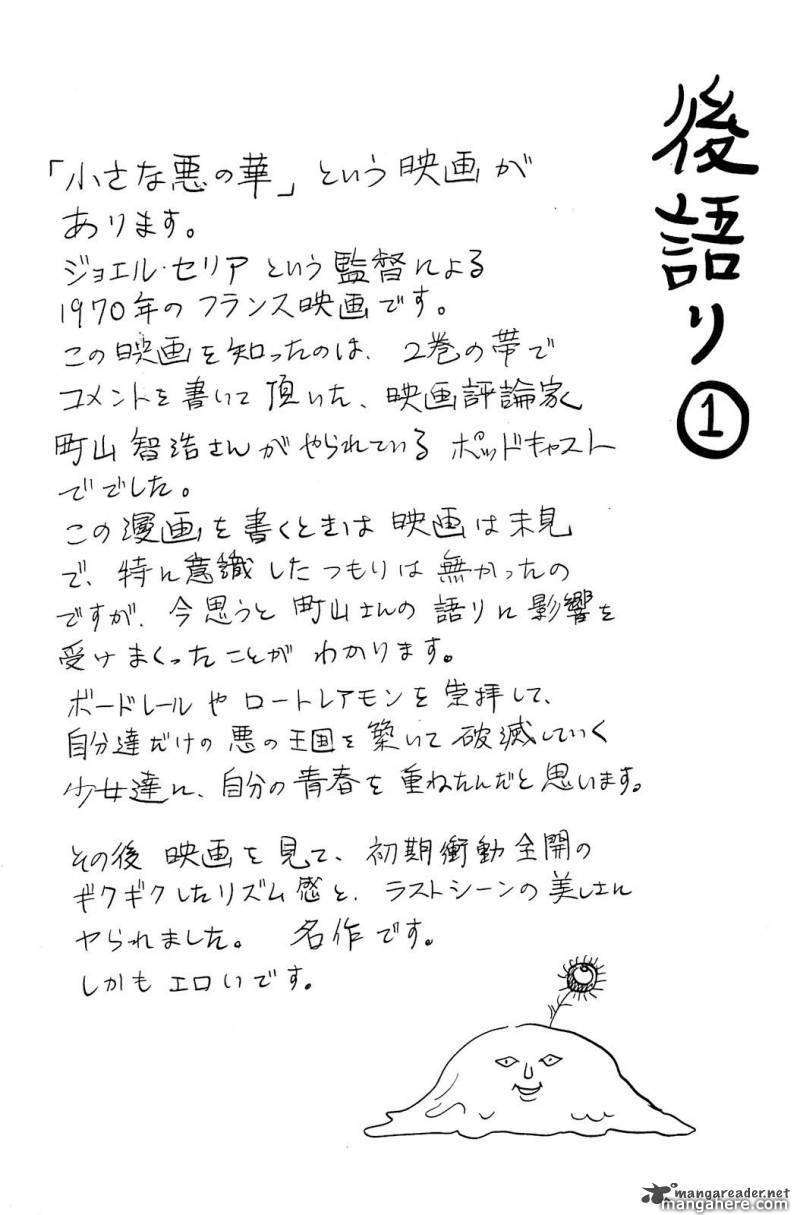 後語り①
「小さな悪の華」という映画が
あります。
ジョエル・セリアという監督による
1970年のフランス映画です。
この映画を知ったのは、2巻の帯で
コメントを書いて頂いた、映画評論家
町山智浩さんがやられているポッドキャスト
ででした。
この漫画を書くときは映画は未見
で、特に意識したつもりは無かったの
ですが、今思うと町山さんの語りに影響を
受けまくったことがわかります。
ボードレールやロートレアモンを崇拝して、
自分達だけの悪の王国を築いて破滅していく
少女達に、自分の青春を重ねたんだと思います。
その後映画を見て、初期衝動全開の
ギクギクしたリズム感と、ラストシーンの美しさに
ヤられました。 名作です。
しかもエロいです。
mangareader.net
mangahere.com